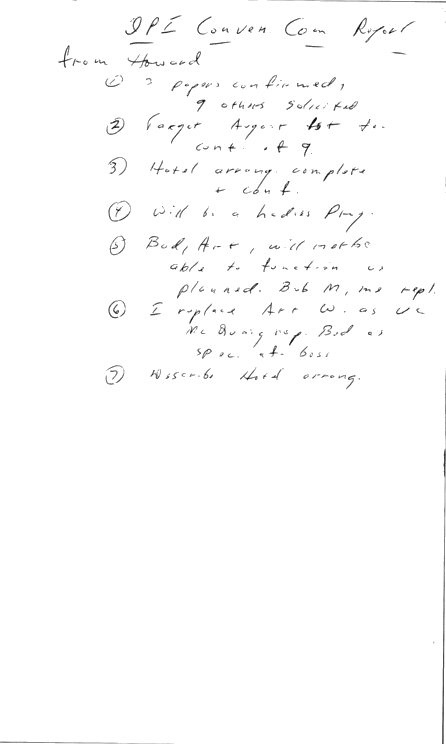 DPI Conven Com Report
from Howard
① 3 papers confirmed,
9 others solicited
② Target August 1st to
cont. of 9.
③ Hotel arrang. complete
+ conf.
④ Will be a ladies Prog.
⑤ Bud, Art, will not be
able to function as
planned. Bob M, me repl.
⑥ I replace Art W. as VC
Mc Quaig rep. Bud as
spec. at
⑦ Describe Hotel arrang.